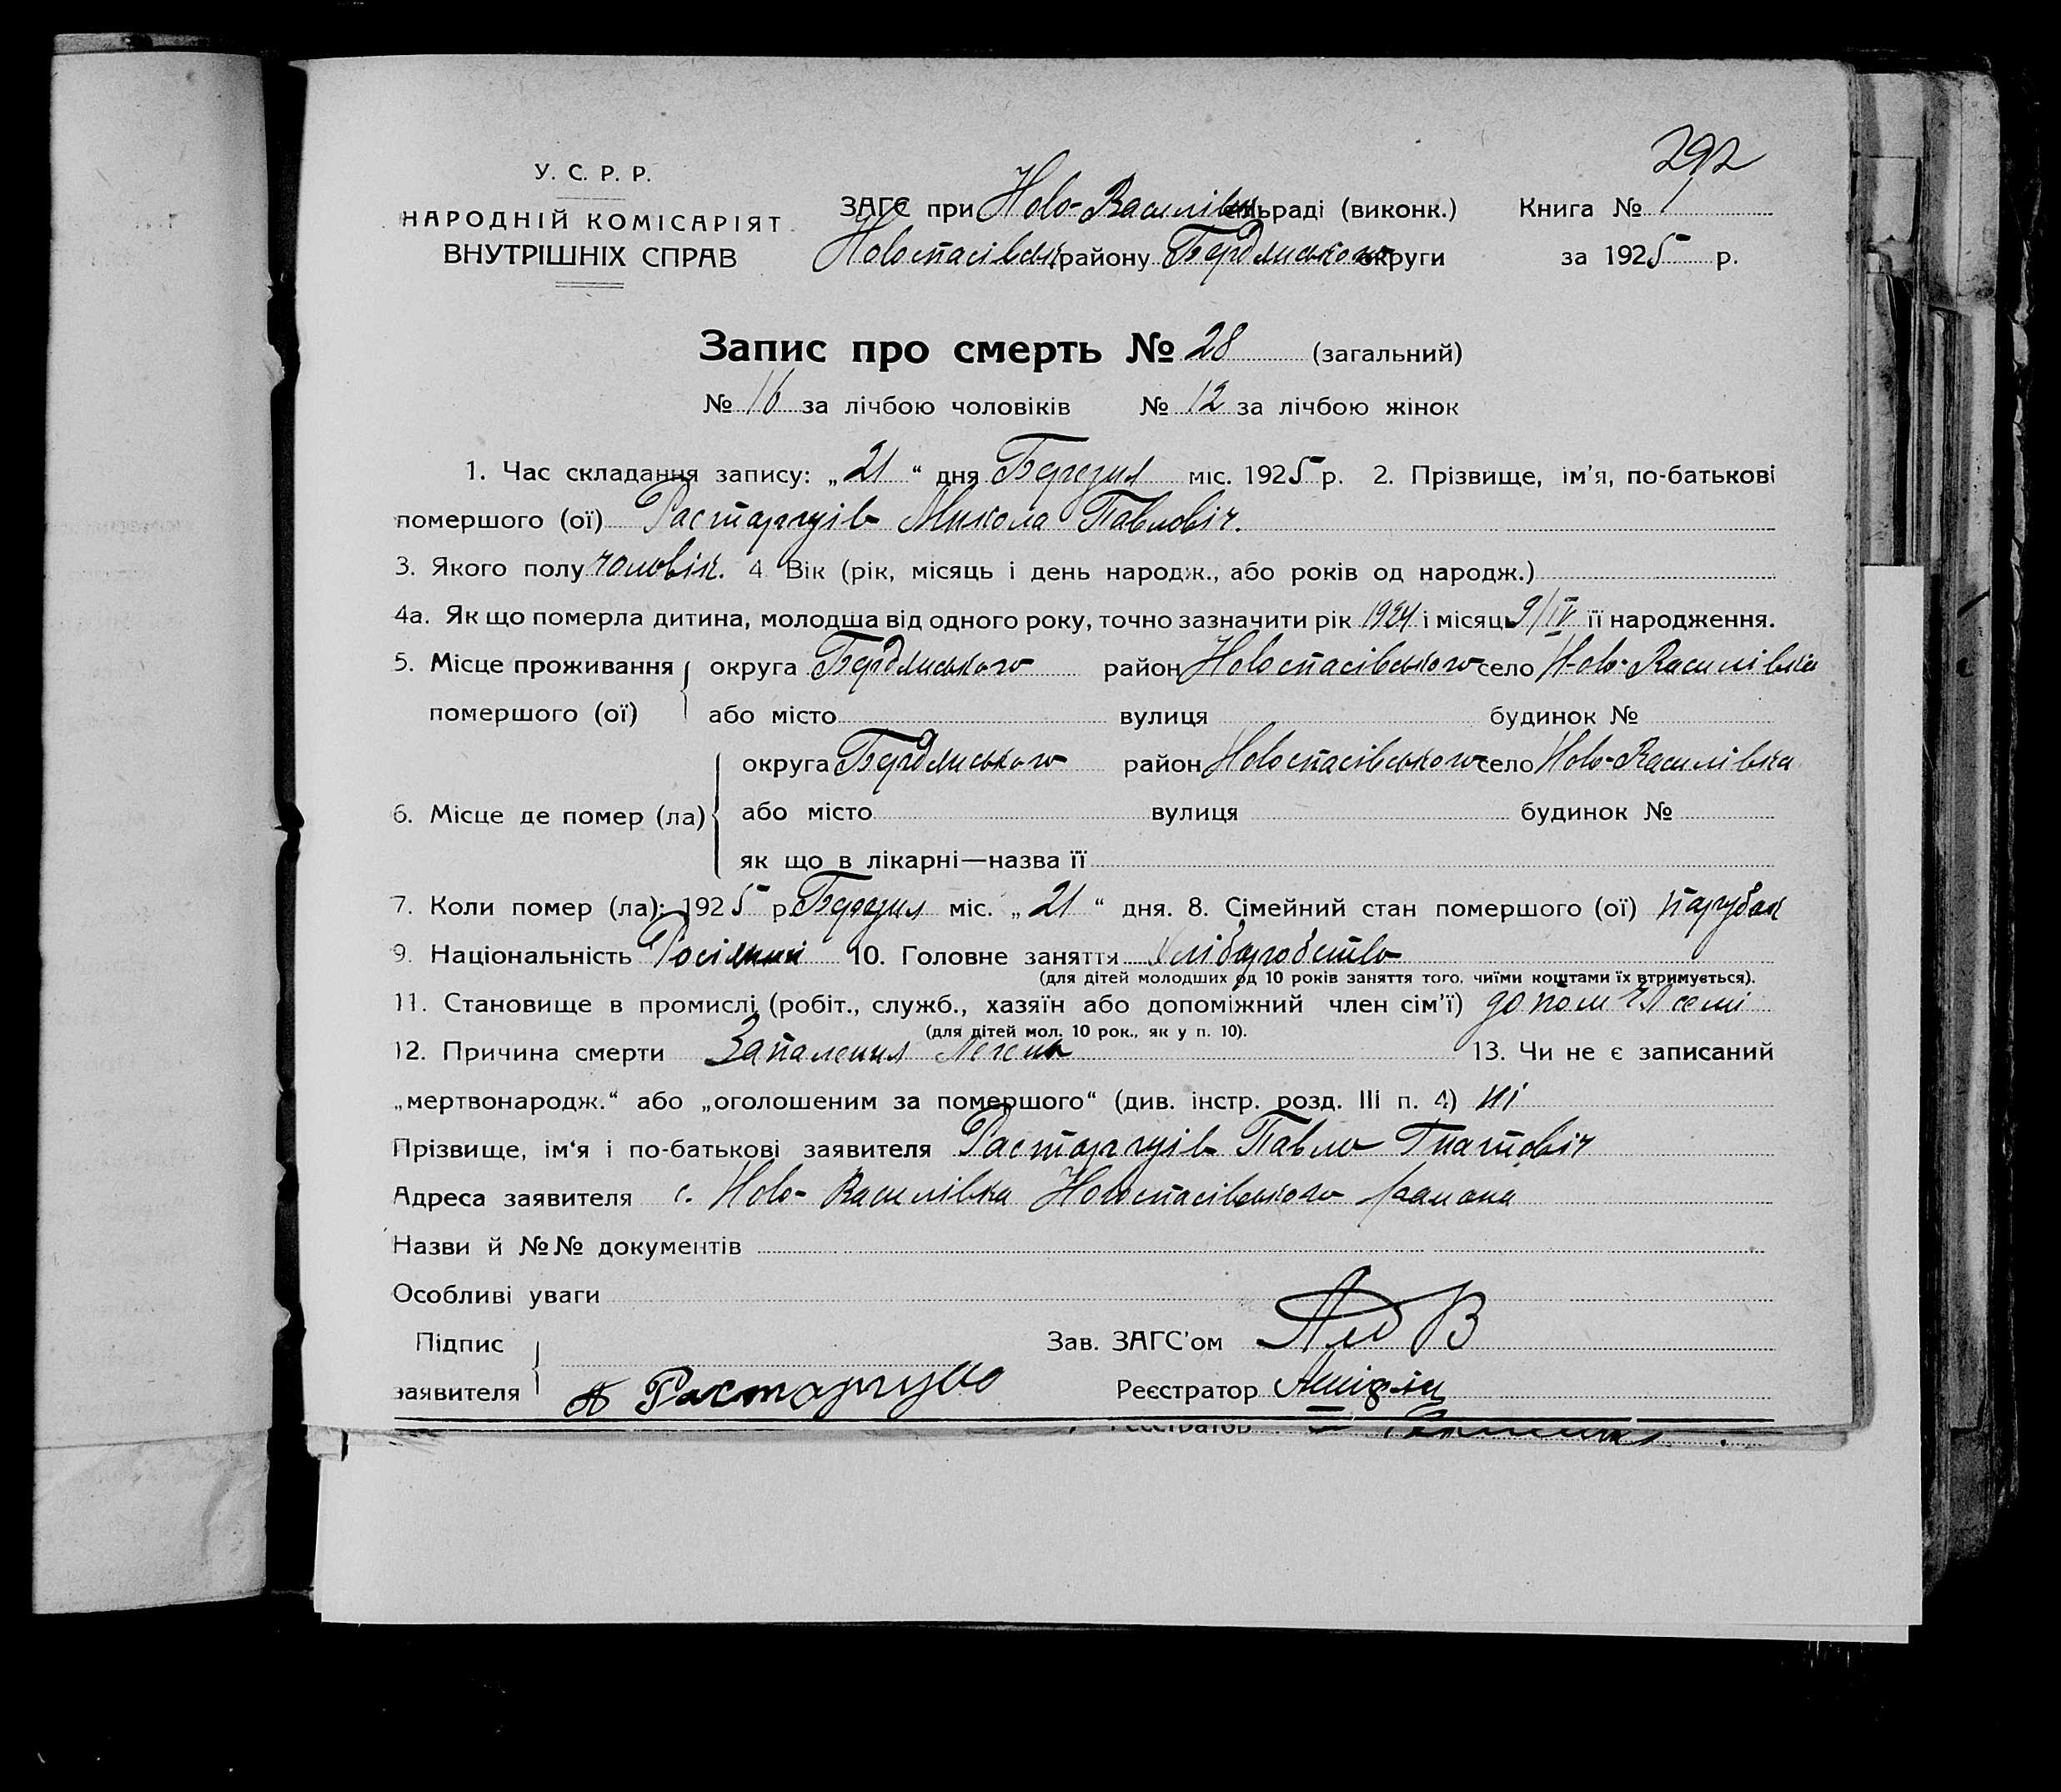 292
У. С. Р. Р.
НАРОДНІЙ КОМІСАРІЯТ
ВНУТРІШНІХ СПРАВ
ЗАГС при Ново-Василівк сільраді (виконк.) Книга № 1
Новоспасівськ району Бердянського округи за 1925 р.
Запис про смерть № 28 (загальний)
№ 16 за лічбою чоловіків № 12 за лічбою жінок
1. Час складання запису: „21“ дня Березня міс. 1925 р. 2. Прізвище, ім’я, по-батькові
помершого (ої) Растаргуів Микола Павловіч.
3. Якого полу чоловік. 4 Вік (рік, місяць і день народж., або років од народж.)
4а. Як що померла дитина, молодша від одного року, точно зазначити рік 1924 і місяць 9/IV її народження.
5. Місце проживання округа Бердянського район Новоспасівського село Ново-Василівка
помершого (ої) або місто вулиця будинок №
округа Бердянського район Новоспасівського село Ново-Василівка
6. Місце де помер (ла) або місто вулиця будинок №
як що в лікарні—назва її
7. Коли помер (ла): 1925 р. Березня міс. „21“ дня. 8. Сімейний стан помершого (ої) парубок
9. Національність 10. Головне заняття хліборобство
(для дітей молодших од 10 років заняття того, чиїми коштами їх втримується).
11. Становище в промислі (робіт., служб., хазяїн або допоміжний член сім’ї) допом чл семі
(для дітей мол. 10 рок., як у п. 10).
12. Причина смерти Запалення Легень 13. Чи не є записаний
„мертвонародж.“ або „оголошеним за помершого“ (див. інстр. розд. III п. 4) ні
Прізвище, ім‘я і по-батькові заявителя Растаргуів Павло Гнатовіч
Адреса заявителя с. Ново-Василівка Новоспасівського района
Назви й №№ документів
Особливі уваги
Підпис Зав. ЗАГС’ом
заявителя Растаргуев Реєстратор
Реєстратор